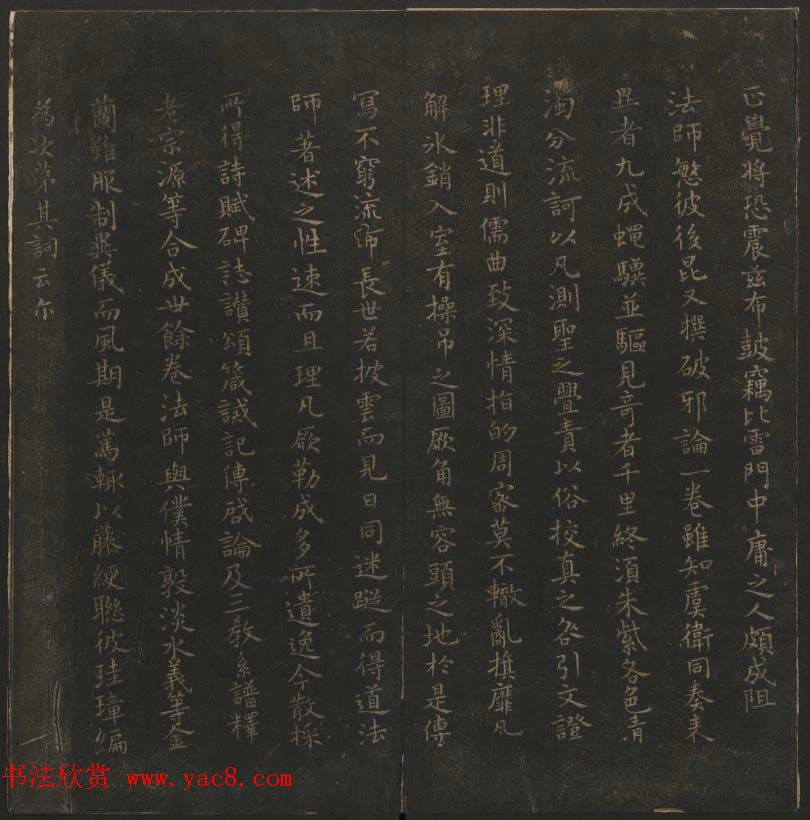 正覺將恐震茲布鼓竊比雷門中庸之人頗成阻
法師愍彼後昆又撰破邪論一卷雖知虞衛同奏表
異者九成蠅驥並驅見奇者千里終須朱紫各色青
濁分流訶以凡測聖之舋責以俗挍真之咎引文證
理非道則儒曲致深情指的周密莫不轍亂旗靡凡
解氷銷入室有操吊之圖厥角無容頭之地於是傳
寫不窮流師長世若披雲而見日同迷蹤而得道法
師著述之性速而且理凡厥勒成多所遺逸今散採
所得詩賦碑誌讚頌箴誡記傳啓論及三教系譜釋
老宗源等合成卅餘卷法師與僕情敦淡水義等金
蘭雖服制異儀而風期是篤輒以藤緶聯彼珪璋編
為次第其詞云尒
书法欣赏 www.yac8.com